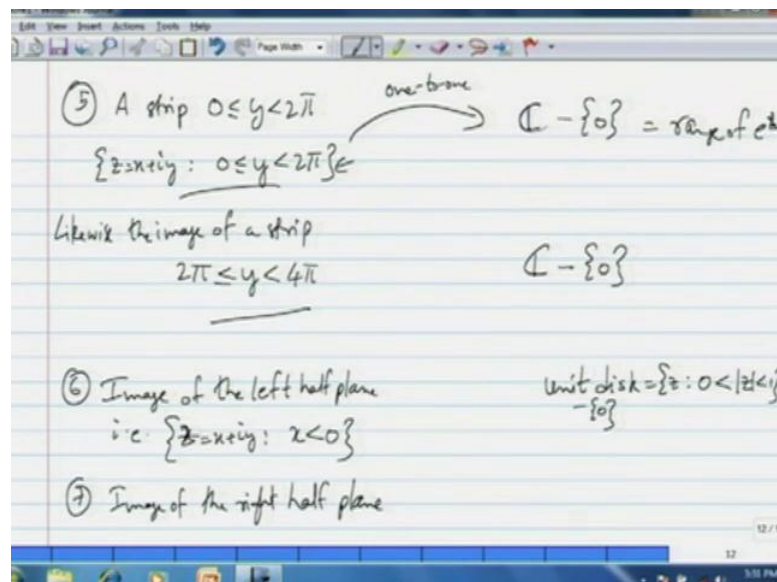 Edit View Insert Actions Tools Help
Page Width
⑤ A strip 0 ≤ y < 2π
one-to-one
ℂ - {0} = range of e^z
{z=x+iy : 0 ≤ y < 2π}
Likewise the image of a strip
2π ≤ y < 4π
ℂ - {0}
⑥ Image of the left half plane
unit disk = {z : 0 < |z| < 1}
- {0}
i.e. {z=x+iy : x<0}
⑦ Image of the right half plane
12
5:51 PM